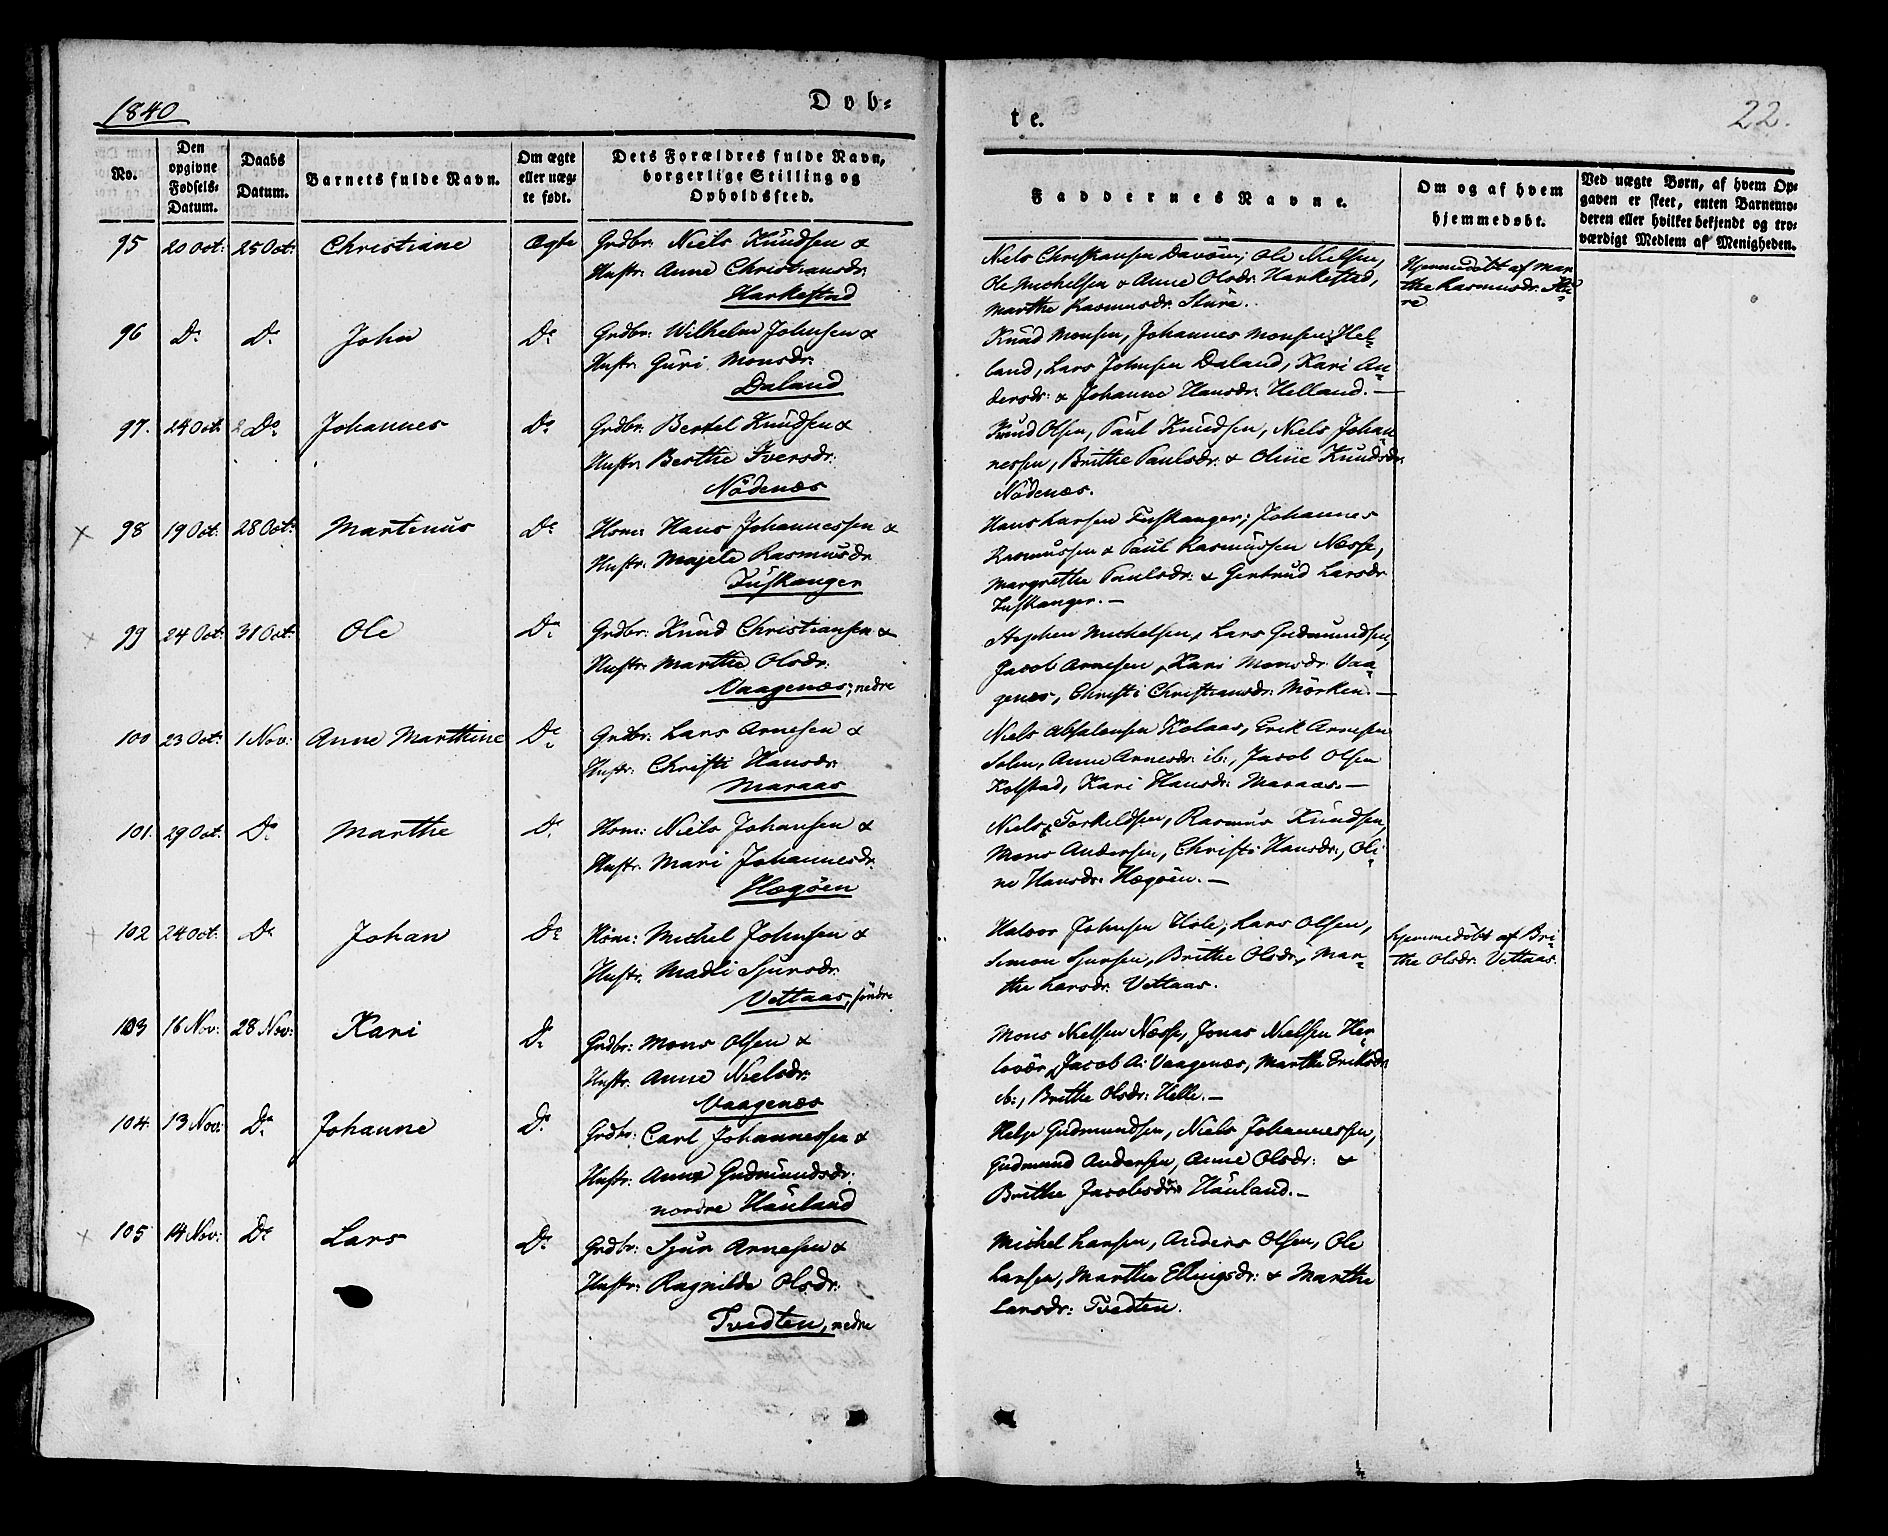 1840
Døb=
te.
22.
No.
Den opgivne Fødsels= Datum.
Daabs Datum.
Barnets fulde Navn.
Om ægte eller uæg= te født.
Dets Forældres fulde Navn, borgerlige Stilling og Opholdssted.
Faddernes Navne.
Om og af hvem hjemmedøbt.
Ved uægte Børn, af hvem Op= gaven er skeet, enten Barnemo= deren eller hvilket bekjendt og tro= værdigt Medlem af Menigheden.
95 20 Oct: 25 Oct: Christiane Ægte Grdbr: Niels Knudsen &
Hustr: Anne Christiansdr:
Harkestad
Niels Christiansen Davøen, Ole Nielsen,
Ole Michelsen & Anne Olsdr: Harkestad,
Marthe Rasmusdr: Sture.
Hjemmedøbt af Mar=
the Rasmusdr: Stu=
re
96 Do Do John Do Grdbr: Wilhelm Johnsen &
Hustr: Guri Monsdr:
Daland
Knud Monsen, Johannes Monsen Hel=
land, Lars Johnsen Daland, Kari An=
dersdr: & Johanne Hansdr: Helland. —
97. 24 Oct: Do Johannes Do Grdbr: Bertel Knudsen &
Hustr: Berthe Iversdr:
Nødenæs
Knud Olsen, Paul Knudsen, Niels Johan=
nessen, Brithe Paulsdr: & Oline Knudsdr:
Nødenæs.
98 19 Oct: 28 Oct: Martinus Do Hsm: Hans Johannessen &
Hustr: Magele Rasmusdr
Tuskanger
Hans Larsen Tuskanger, Johannes
Rasmussen & Paul Rasmussen Næsse,
Margrethe Paulsdr: & Gertrud Larsdr
Tuskanger. —
99 24 Oct: 31 Oct: Ole Do Grdbr: Knud Christiansen &
Hustr: Marthe Olsdr:
Vaagenæs, nedre
Stephen Michelsen, Lars Gudmundsen,
Jacob Arnesen, Kari Monsdr: Vaa=
genæs, Christi Christiansdr: Mørken. —
100 23 Oct: 1 Nov: Anne Marthine Do Grdbr: Lars Arnesen &
Hustr: Christi Hansdr:
Maraas
Niels Absalonsen Kolaas, Erik Arnesen
Solem, Anne Arnesdr: ib:, Jacob Olsen
Kolstad, Kari Hansdr: Maraas. —
101. 29 Oct: Do Marthe Do Hsm: Niels Johansen &
Hustr: Mari Johannesdr:
Hægøen
Niels Torkildsen, Rasmus Knudsen,
Mons Andersen, Christi Hansdr:, Oli=
ne Hansdr: Hægøen. —
102 24 Oct: Do Johan Do Hsm: Michel Johnsen &
Hustr: Madli Sjursdr:
Vettaas, søndre
Halvor Johnsen Hole, Lars Olsen,
Simon Sjursen, Brithe Olsdr:, Mar=
the Larsdr: Vettaas.
hjemmedøbt af Bri=
the Olsdr: Vettaas.
103 16 Nov: 28 Nov: Kari Do Grdbr: Mons Olsen &
Hustr: Anne Nielsdr:
Vaagenæs
Mons Nielsen Næsse, Jonas Nielsen Her=
lovær, Jacob A: Vaagenæs, Marthe Eriksdr:
ib:, Brithe Olsdr: Helle. —
104. 13 Nov: Do Johanne Do Grdbr: Carl Johannessen &
Hustr: Anne Gudmundsdr:
nordre Hauland
Helje Gudmundsen, Niels Johannessen,
Gudmund Andersen, Anne Olsdr: &
Brithe Jacobsdr: Hauland. —
105 14 Nov: Do Lars Do Grdbr: Sjur Arnesen &
Hustr: Ragnilde Olsdr:
Tvedten, nedre
Michel Larsen, Anders Olsen, Ole
Larsen, Marthe Ellingsdr: & Marthe
Larsdr: Tvedten.